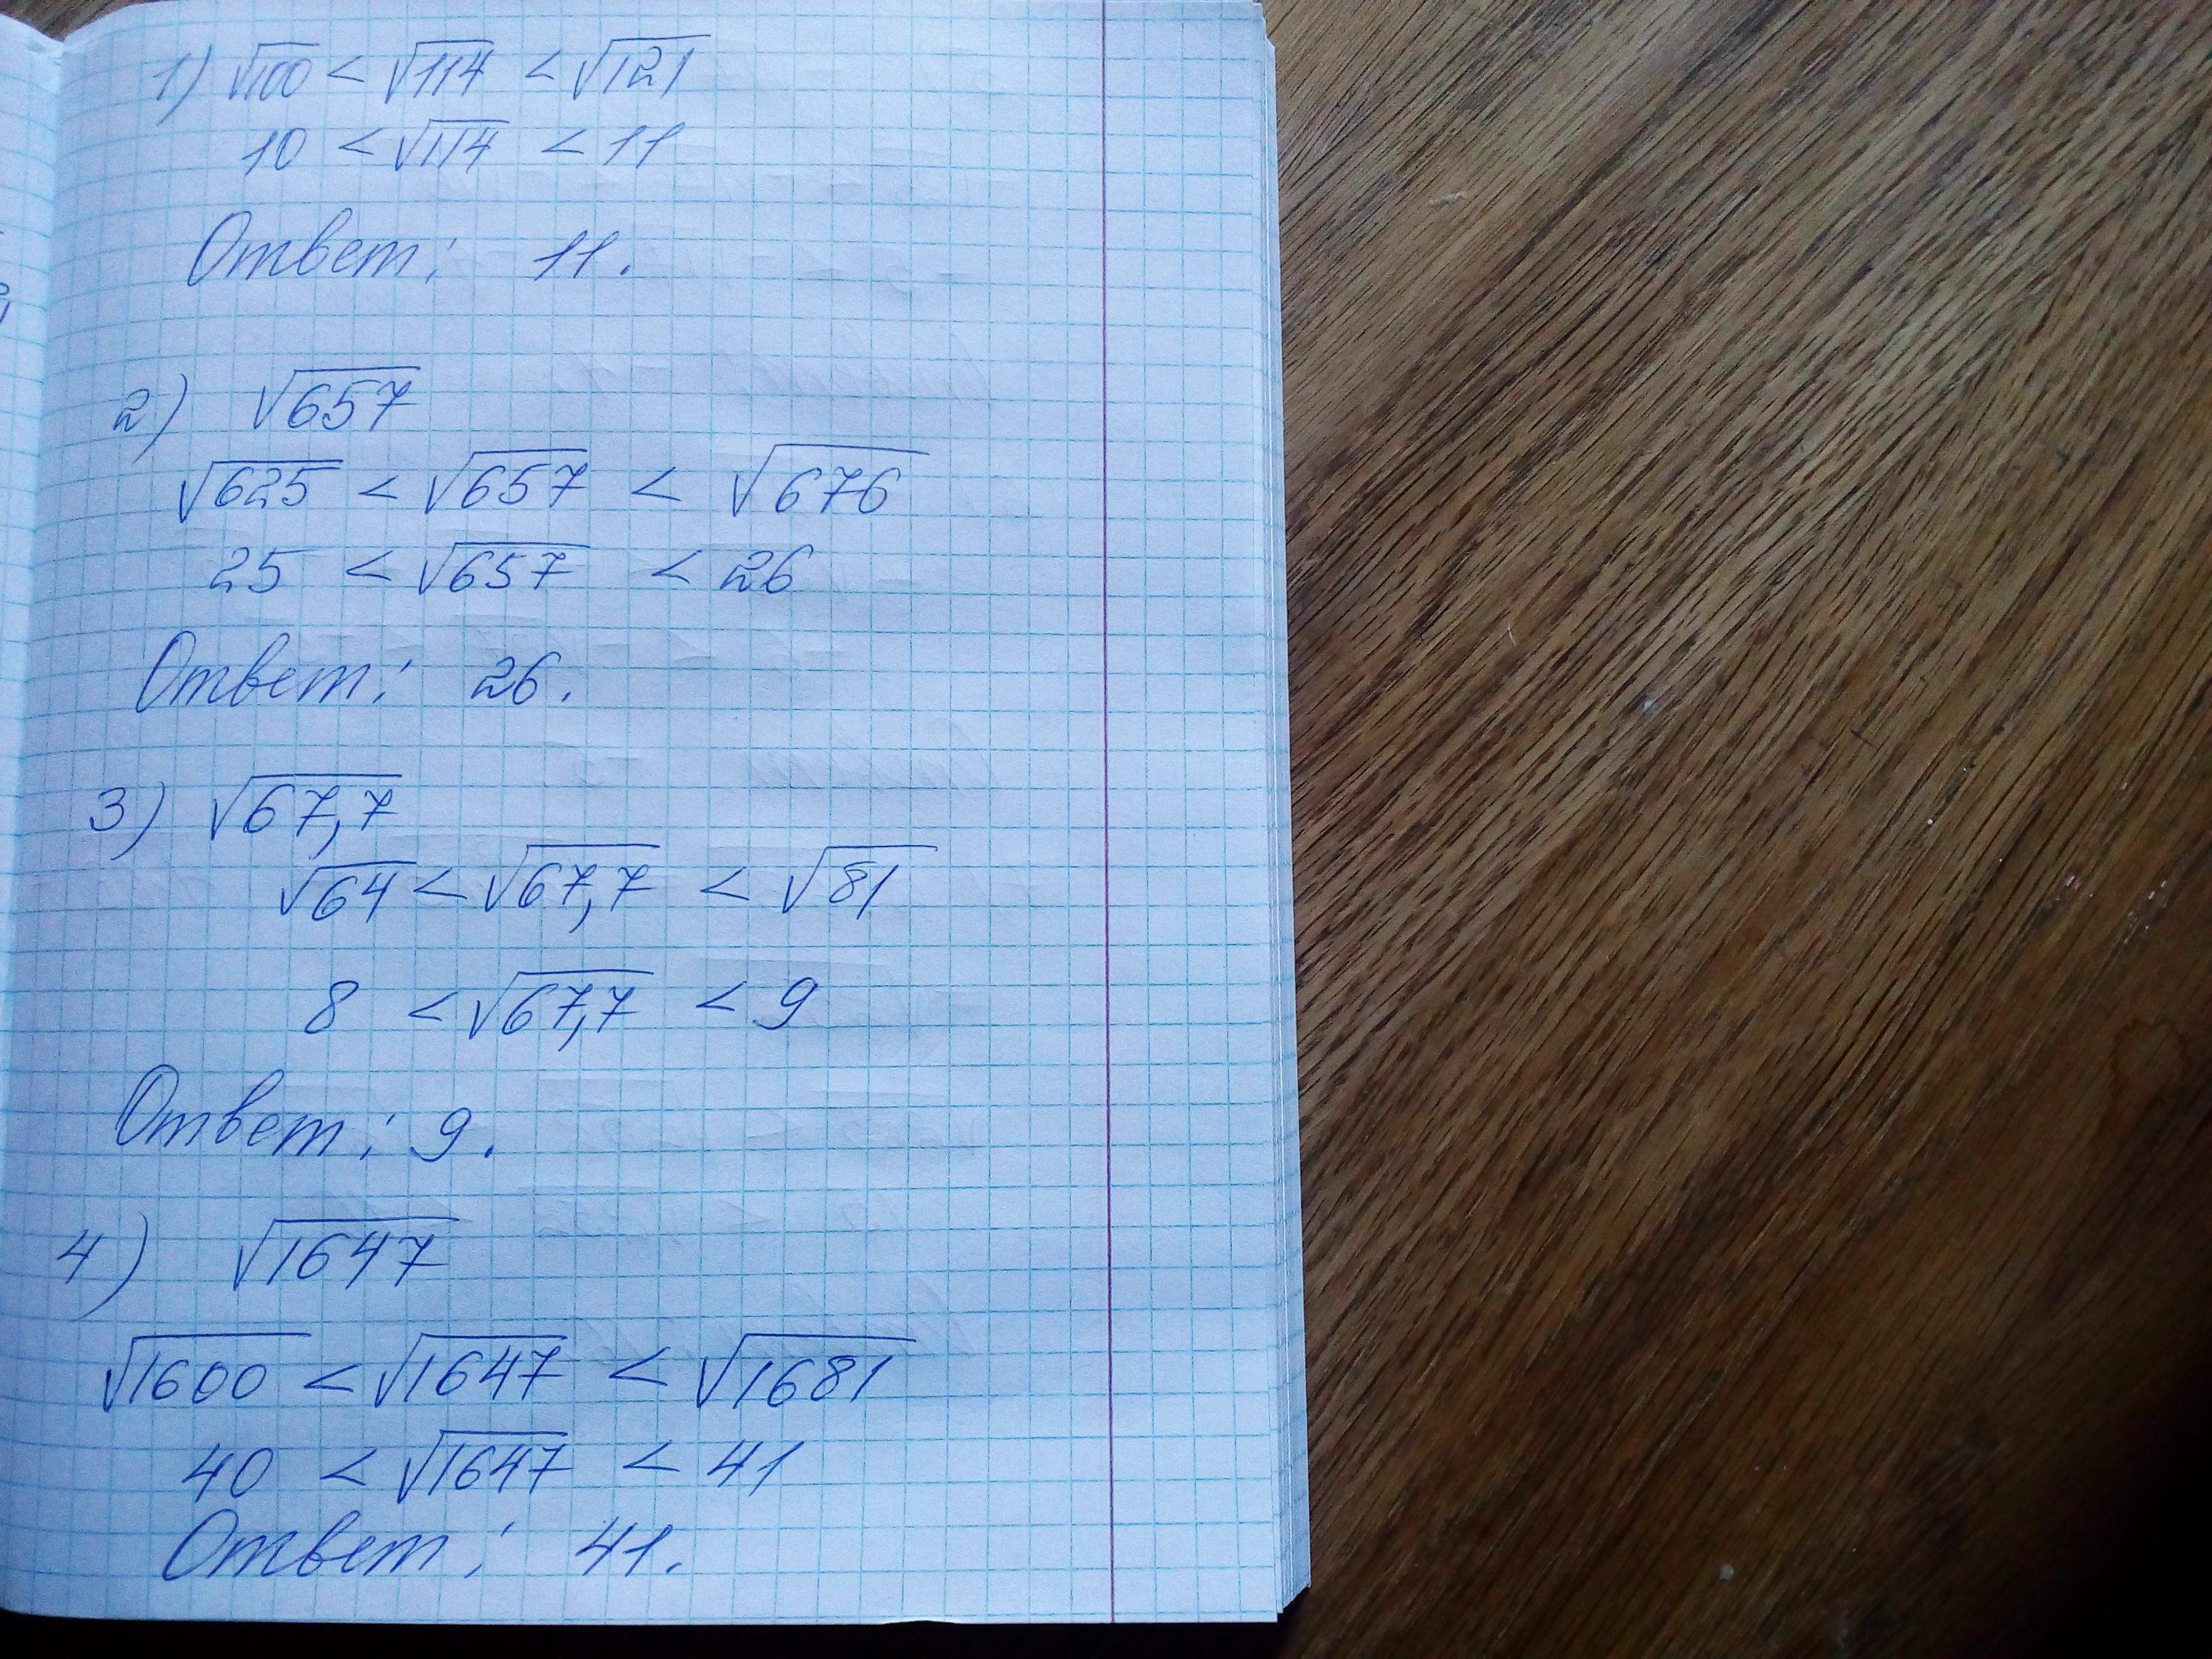 1) √100 < √114 < √121
10 < √114 < 11
Ответ: 11.
2) √657
√625 < √657 < √676
25 < √657 < 26
Ответ: 26.
3) √67,7
√64 < √67,7 < √81
8 < √67,7 < 9
Ответ: 9.
4) √1647
√1600 < √1647 < √1681
40 < √1647 < 41
Ответ: 41.